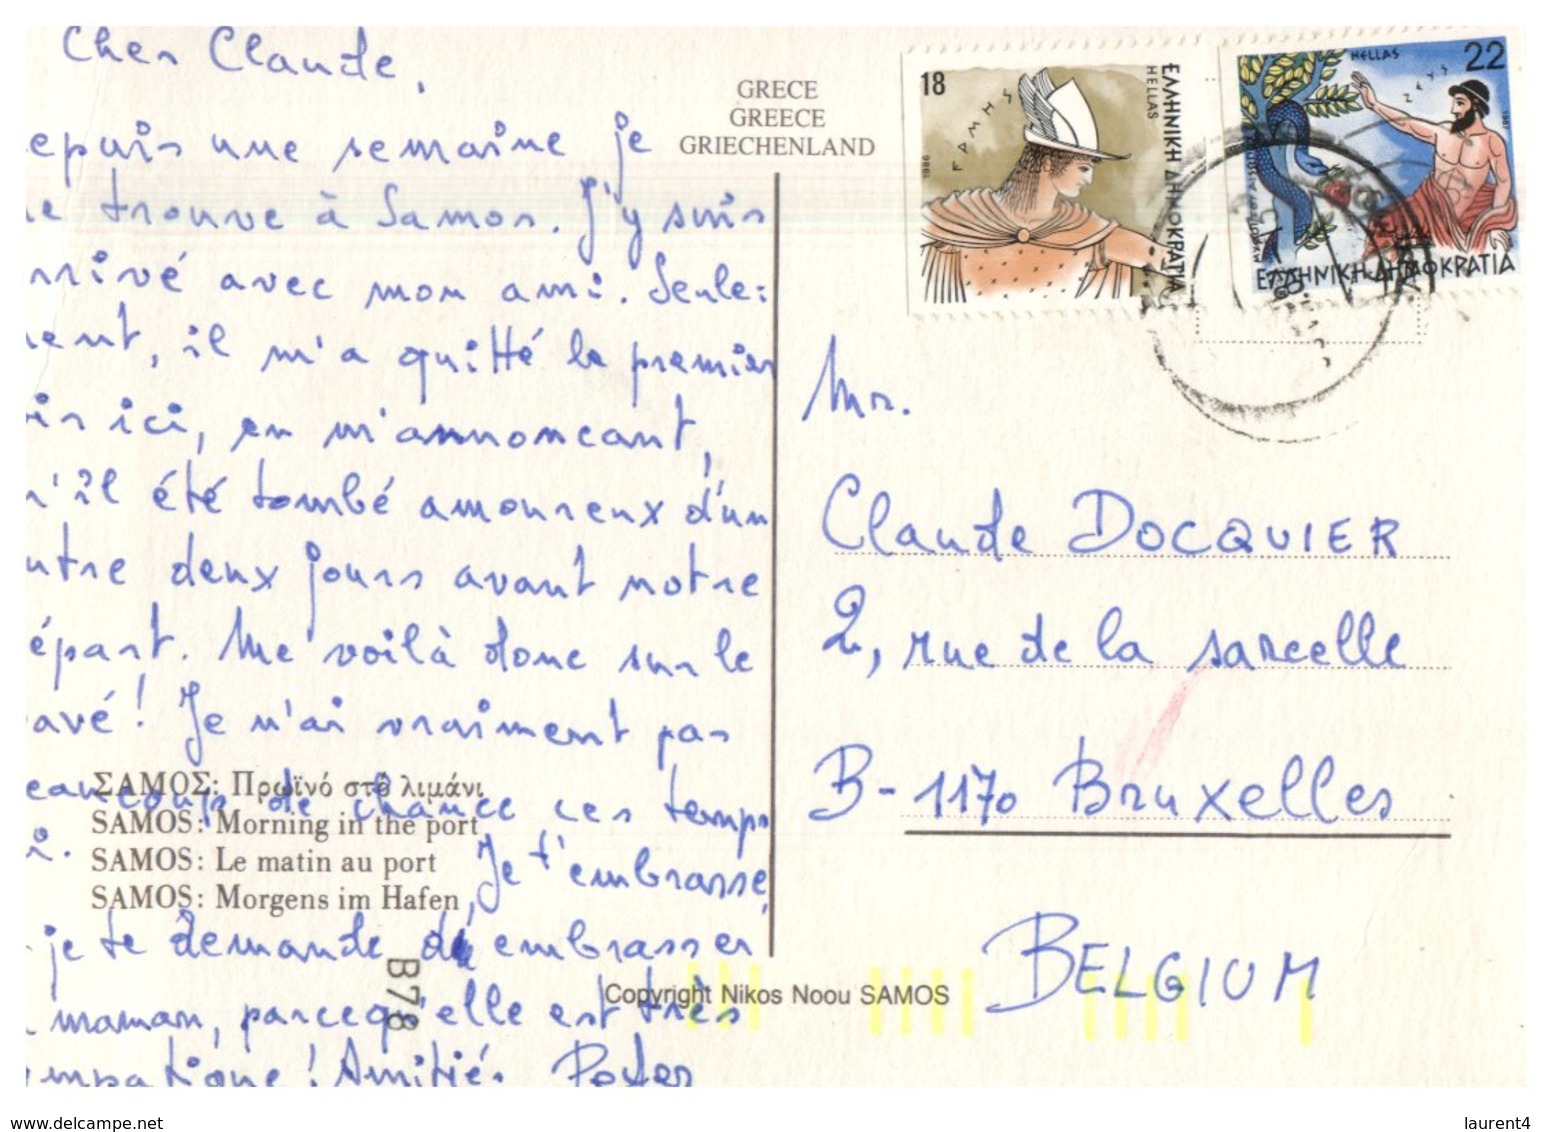 Cher Claude,
epuis une semaine je
e trouve à Samos. J'y suis
rrivé avec mon ami. Seule-
ment, il m'a quitté le premier
ici, en m'annoncant,
'il été tombé amoureux d'un
utre deux jours avant notre
épart. Me voilà donc sur le
avé! Je n'ai vraiment pas
eaucoup de chance ces temps
Je t'embrasse,
je te demande d'embrasser
maman, parceq'elle est très
ympatique! Amitiés Peter
ΣΑΜΟΣ: Πρωϊνό στό λιμάνι
SAMOS: Morning in the port
SAMOS: Le matin au port
SAMOS: Morgens im Hafen
B78
GRECE
GREECE
GRIECHENLAND
Copyright Nikos Noou SAMOS
18
ΕΛΛΗΝΙΚΗ ΔΗΜΟΚΡΑΤΙΑ
HELLAS
1986
HELLAS
22
ΖΕΥΣ
1987
ΕΛΛΗΝΙΚΗ ΔΗΜΟΚΡΑΤΙΑ
Mr.
Claude DOCQUIER
2, rue de la sarcelle
B-1170 Bruxelles
BELGIUM
www.delcampe.net
laurent4